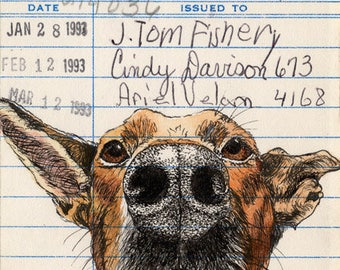 DATE ISSUED TO
JAN 28 1993 J. Tom Fishery
FEB 12 1993 Cindy Davison 673
MAR 12 1993 Ariel Velasn 4168